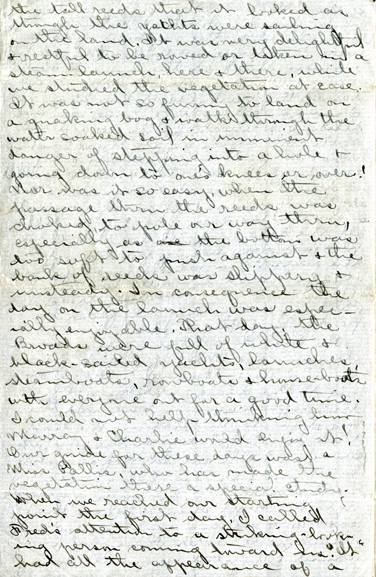 the tall reeds that it looked as
though the yachts were sailing
on the land. It was very delightful
& restful to be rowed or taken by a
steam launch, here & there, while
we studied the vegetation at ease.
It was not so funny to land on
a quaking bog & walk through the
water soaked soil in imminent
danger of stepping into a hole &
going down to one's knees or over!
Nor was it so easy, when the
passage thru the reeds was
choked, to pole our way thru,
especially as the bottom was
too soft to push against & the
bank of reeds was slippery &
unsteady. In consequence the
day on the launch was espec-
ially enjoyable. That day, the
Broads were full of white &
black-sailed yachts, launches,
steamboats, rowboats & house-boats
with everyone out for a good time.
I could not help thinking how
Murray & Charlie would enjoy it!
Our guide for these days was a
Miss Pallis, who has made the
vegetation there a special study.
When we reached our starting
point the first day, I called
Fred's attention to a striking-look-
ing person coming toward us. "It"
had all the appearance of a